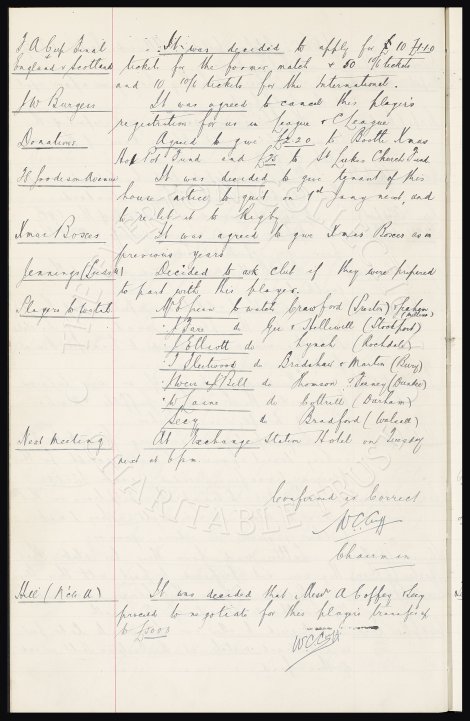 F A Cup Final It was decided to apply for £10
England v Scotland tickets for the former match & 50 10/6 tickets
and 10 10/6 tickets for the International.
J W Burgess It was agreed to cancel this player's
registration for us in League & C League
Donations Agreed to give to Bootle Xmas
Hot Pot Fund and to St Lukes Church Fund
Goodison Avenue It was decided to give tenant of this
house notice to quit on 1st Jany next, and
to re let it to
Xmas Boxes It was agreed to give Xmas Boxes as in
previous years
Jennings (Leeds) Decided to ask club if they were prepared
to part with this player.
Players to watch to watch Crawford (Preston) &
do Gee & Holliwell (Stockport)
J Elliott do Lynch (Rochdale)
J Fleetwood do Bradshaw & Martin (Bury)
& Bell do Thomson (Dundee)
do Cottrill (Durham)
Secy do Bradford (Walsall)
Next Meeting At Exchange Station Hotel on Tuesday
next at 6 pm
Confirmed as Correct
W.C. Cuff
Chairman
It was decided that Messrs A Coffey & Secy
proceed to negotiate for this player's transfer
to £3000
W.C. Cuff
CHARITABLE TRUST